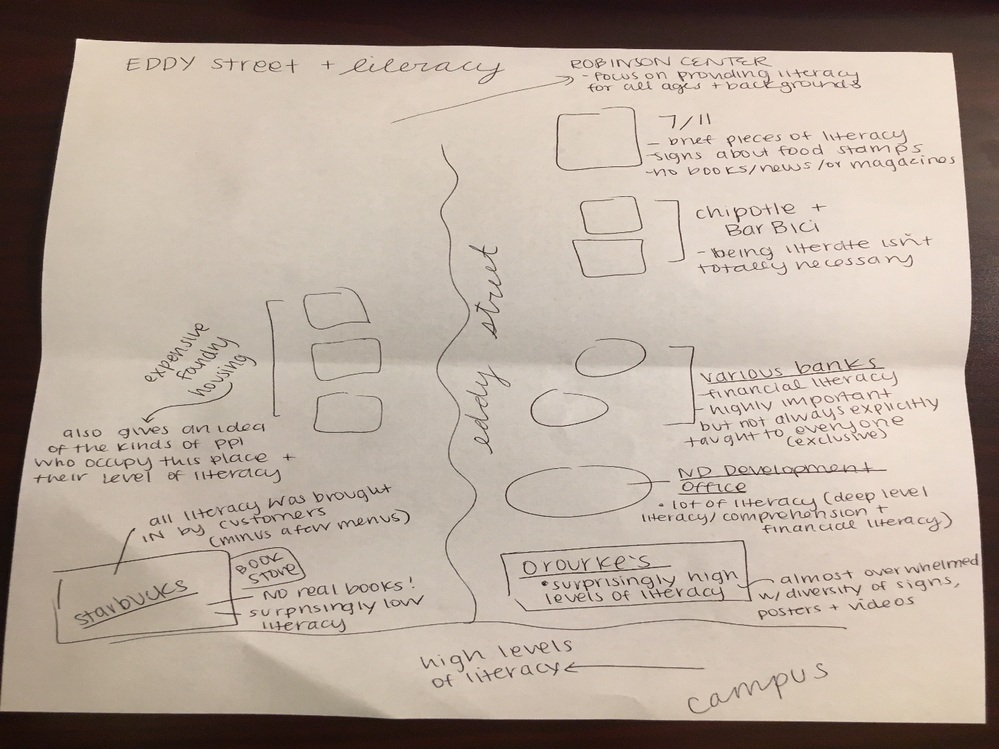 EDDY street + literacy
ROBINSON CENTER
- focus on providing literacy
for all ages + backgrounds
7/11
- brief pieces of literacy
- signs about food stamps
- no books/news/or magazines
chipotle +
Bar Bici
- being literate isn't
totally necessary
eddy street
expensive
foundry
housing
also gives an idea
of the kinds of ppl
who occupy this place +
their level of literacy
various banks
- financial literacy
- highly important
but not always explicitly
taught to everyone
(exclusive)
ND Development
Office
• lot of literacy (deep level
literacy/comprehension +
financial literacy)
all literacy was brought
IN by customers
(minus a few menus)
starbucks
BOOK
STORE
- NO real books!
- surprisingly low
literacy
O'rourke's
• surprisingly high
levels of literacy
- almost overwhelmed
w/ diversity of signs,
posters + videos
high levels
of literacy
campus